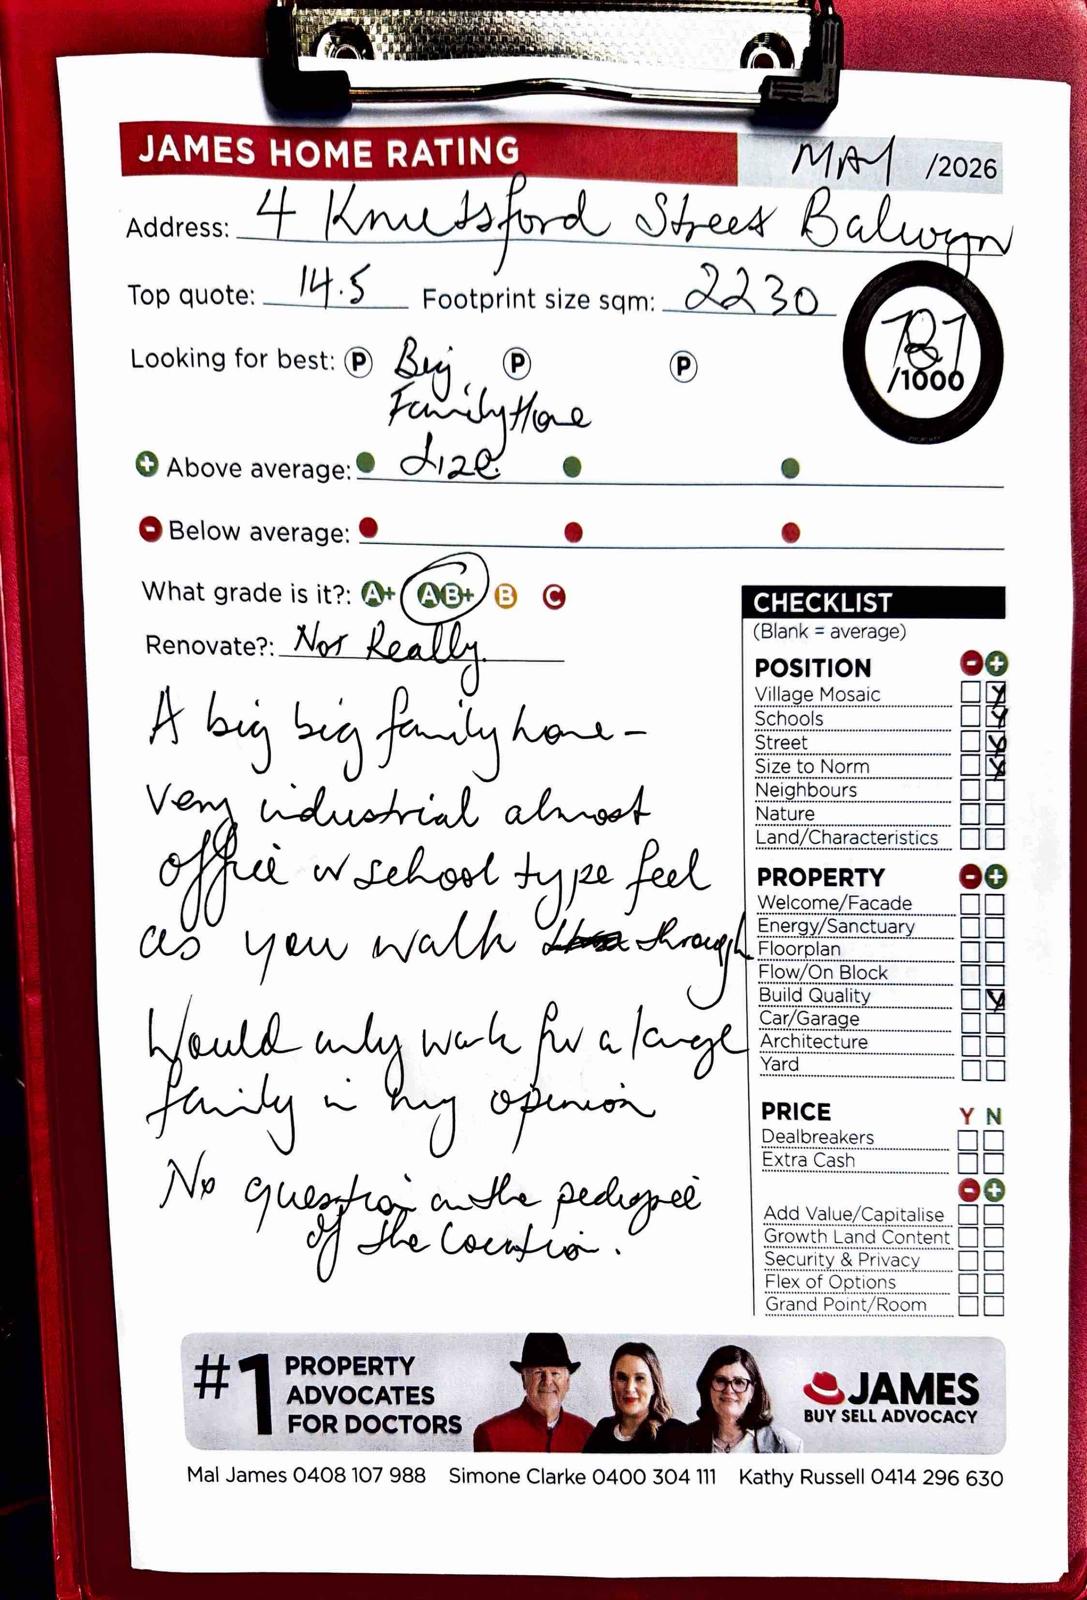 JAMES HOME RATING MAY /2026
Address: 4 Knutsford Street Balwyn
Top quote: 14.5 Footprint size sqm: 2230
787
/1000
Looking for best: P Big P P
Family Home
+ Above average: Size.
- Below average:
What grade is it?: A+ AB+ B C
Renovate?: Not Really.
A big big family home –
very industrial almost
office or school type feel
as you walk through
Would only work for a large
family in my opinion
No question on the pedigree
of the location.
CHECKLIST
(Blank = average)
POSITION - +
Village Mosaic
Schools
Street
Size to Norm
Neighbours
Nature
Land/Characteristics
PROPERTY - +
Welcome/Facade
Energy/Sanctuary
Floorplan
Flow/On Block
Build Quality
Car/Garage
Architecture
Yard
PRICE Y N
Dealbreakers
Extra Cash
- +
Add Value/Capitalise
Growth Land Content
Security & Privacy
Flex of Options
Grand Point/Room
#1 PROPERTY
ADVOCATES
FOR DOCTORS
JAMES
BUY SELL ADVOCACY
Mal James 0408 107 988 Simone Clarke 0400 304 111 Kathy Russell 0414 296 630